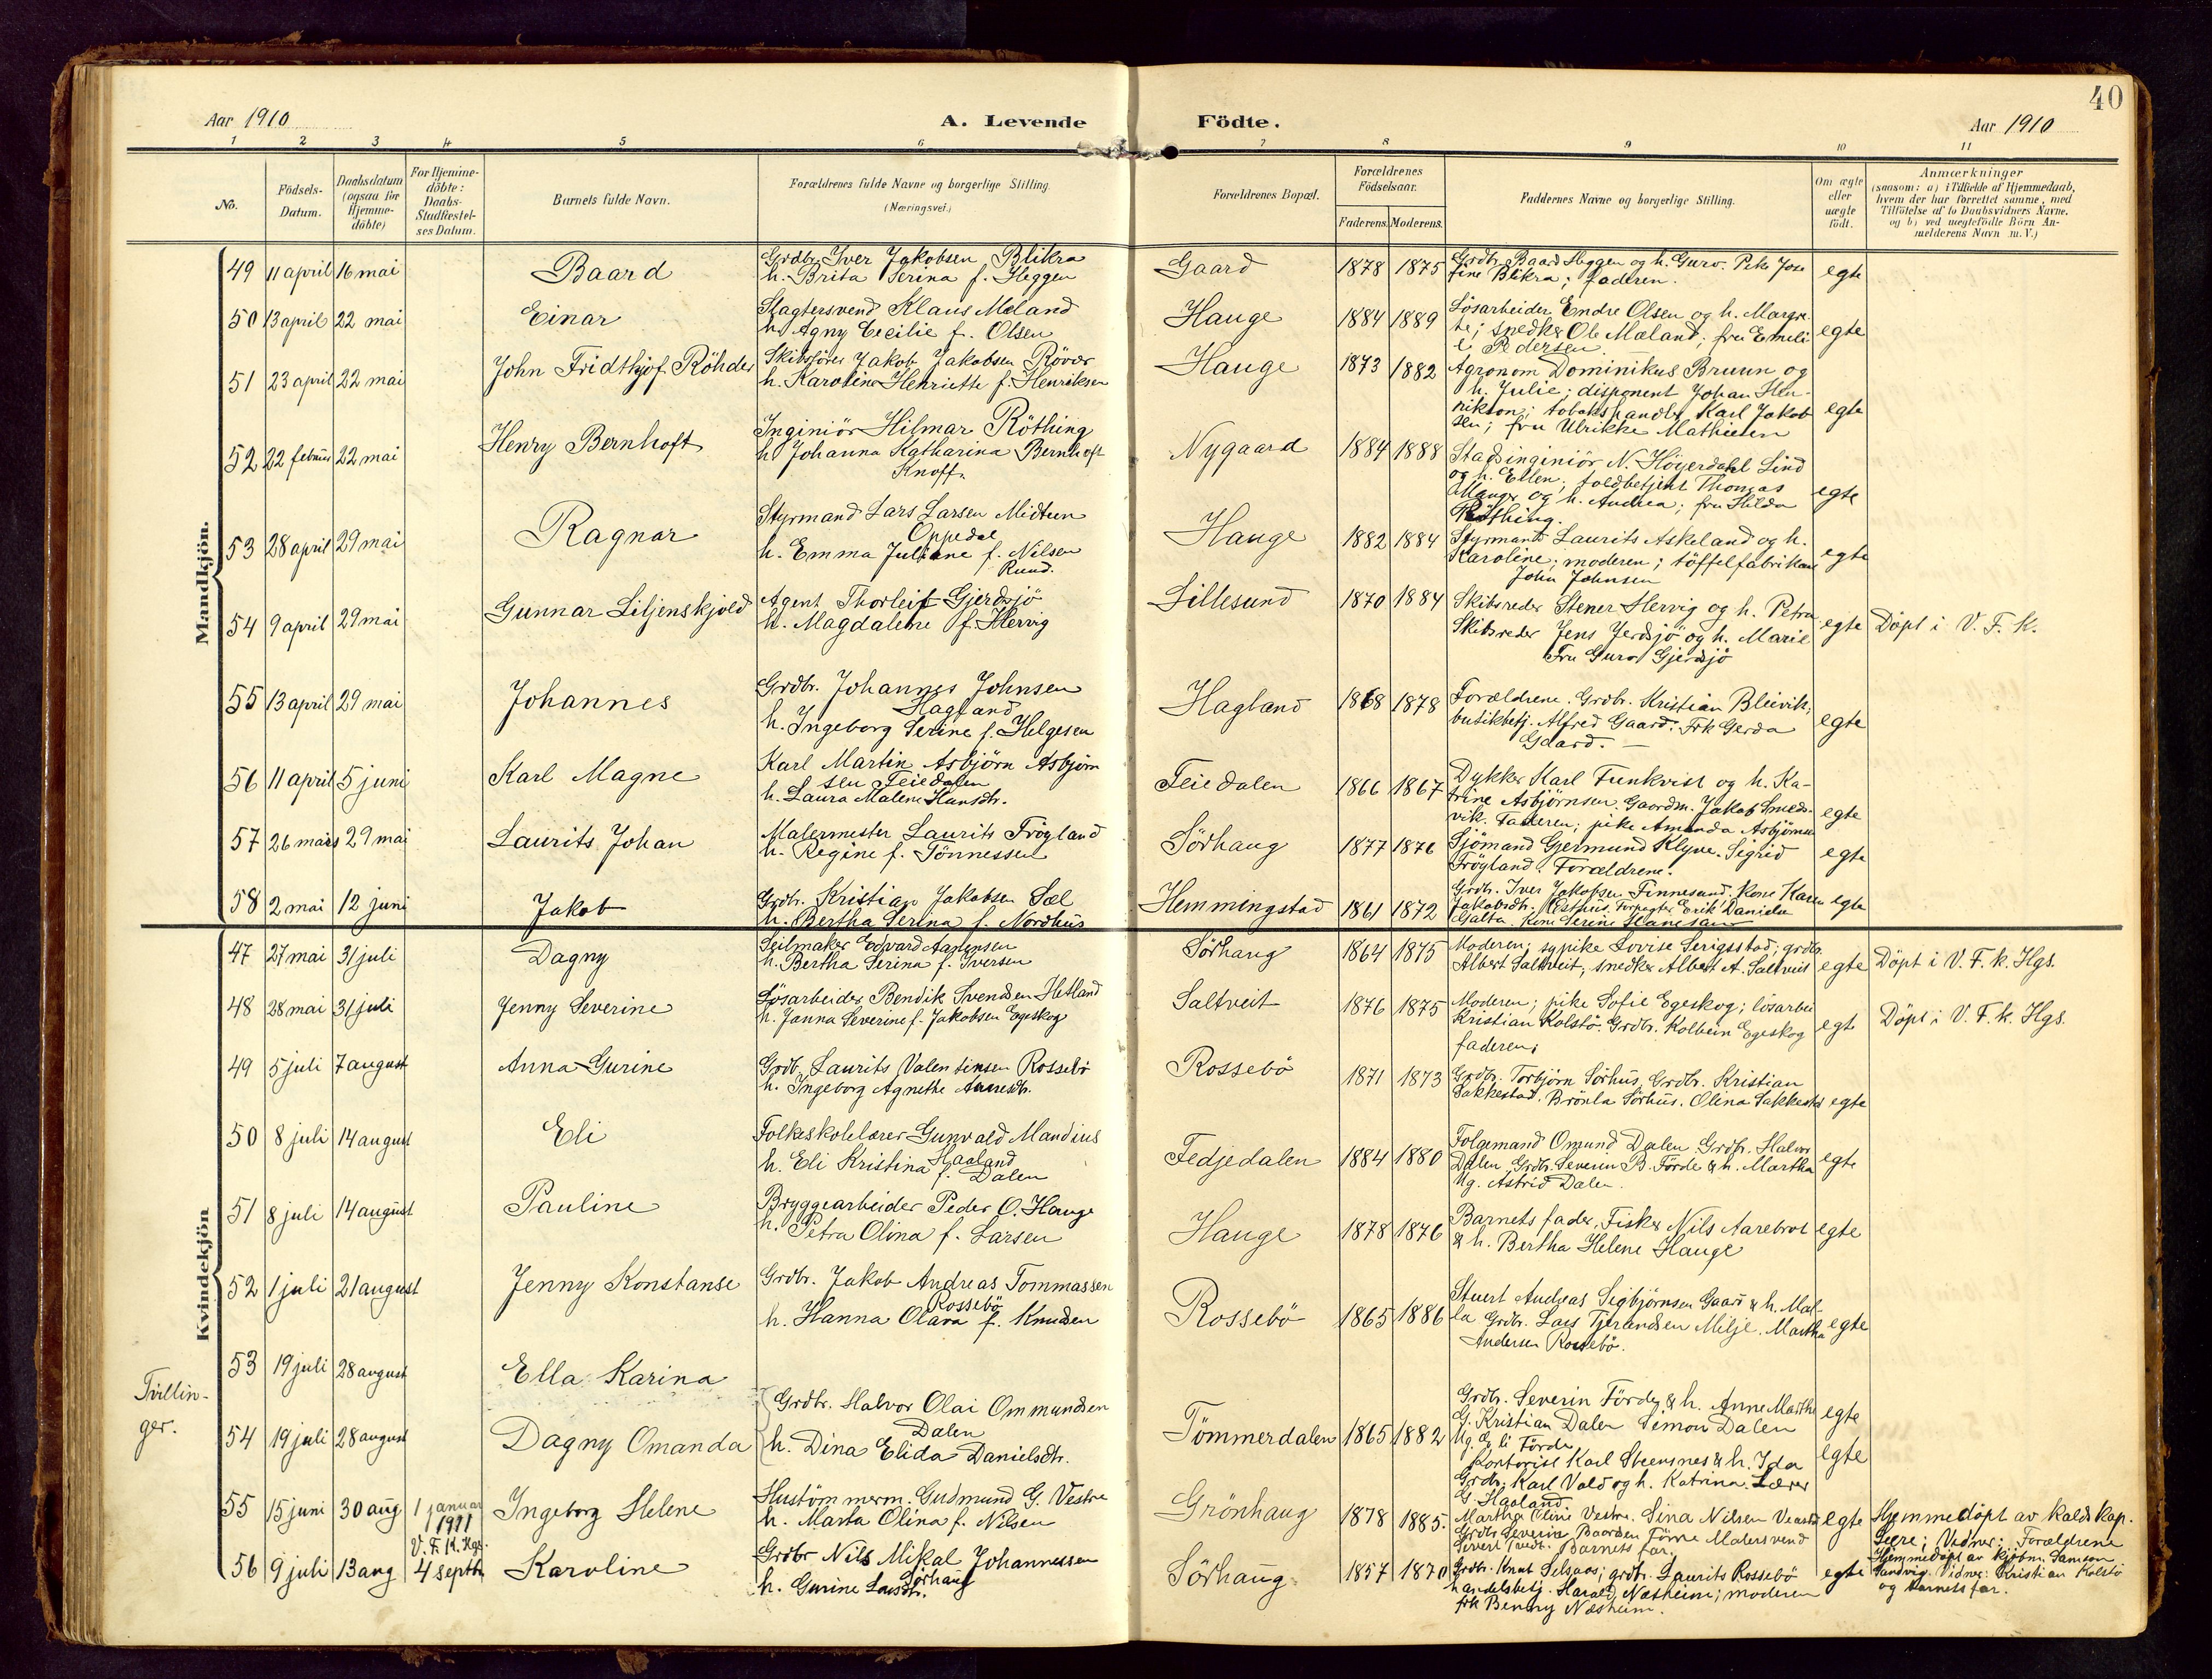 40
Aar 1910
A. Levende Födte.
Aar 1910
1 2 3 4 5 6 7 8 9 10 11
No.
Födsels-Datum.
Daabsdatum (ogsaa for Hjemme-döbte)
For Hjemme-döbte: Daabs-Stadfestel-ses Datum.
Barnets fulde Navn.
Forældrenes fulde Navne og borgerlige Stilling.
(Næringsvei.)
Forældrenes Bopæl.
Forældrenes Födselsaar.
Faderens. Moderens.
Faddernes Navne og borgerlige Stilling.
Om ægte eller uægte födt.
Anmærkninger
(saasom: a) i Tilfælde af Hjemmedaab,
hvem der har forrettet samme, med
Tilföielse af to Daabsvidners Navne.
og b) ved uægtefödte Börn An-
melderens Navn m. V.)
Mandkjön.
49 11 april 16 mai Baard
Grdbr. Iver Jakobsen Blikra
h. Brita Serina f. Heggen
Gaard 1878 1875
Grdbr. Baard Heggen og h. Guro. Pike Jose
fine Blikra; faderen.
egte
50 13 april 22 mai Einar
Slagtersvend Klaus Mæland
h. Agny Cecilie f. Olsen
Hauge 1884 1889
Lösarbeider Endre Olsen og h. Margre
te; snedker Ole Mæland; fru Emeli
e Pedersen
egte
51 23 april 22 mai John Fridthjof Röhder
Skibsförer Jakob Jakobsen Rövær
h. Karoline Henriette f. Henriksen
Hauge 1873 1882
Agronom Dominikus Bruun og
h. Julie; disponent Johan Hen-
rikson; tobakshandler Karl Jakob
sen; fru Ulrikke Mathiesen
egte
52 22 februar 22 mai Henry Bernhoft
Inginiör Hilmar Röthing
h. Johanna Katharina Bernhoft
Knoff.
Nygaard 1884 1888
Stadsinginiör N. Höyerdahl Lind
og h. Ellen; toldbetjent Thomas
Manger og h. Andrea; fru Hilda
Röthing.
egte
53 28 april 29 mai Ragnar
Styrmand Lars Larsen Midtun
Oppedal
h. Emma Juliane f. Nilsen
Rund.
Hauge 1882 1884
Styrmand Laurits Askeland og h.
Karoline; moderen; töffelfabrikant
John Johnsen
egte
54 9 april 29 mai Gunnar Liljenskjold
Agent Thorleif Gjerdsjö
h. Magdalene f. Hervig
Lillesund 1870 1884
Skibsreder Stener Hervig og h. Petra
Skibsreder Jens Jerdsjö og h. Marie
Fru Guro Gjerdsjö
egte
Döpt i V. F. K.
55 13 april 29 mai Johannes
Grdbr. Johannes Johnsen
Hagland
h. Ingeborg Serine f. Helgesen
Hagland 1868 1878
Forældrene. Grdbr. Kristian Bleivik;
butikbetj. Alfred Gaard. Frk Gerda
Gaard.
egte
56 11 april 5 juni Karl Magne
Karl Martin Asbjörn Asbjörn
sen Feiedalen
h. Laura Malene Hansdtr.
Feiedalen 1866 1867
Dykker Karl Funkvist og h. Ka-
trine Asbjörnsen. Gaardm. Jakob Smeds-
vik. Faderen; pike Amanda Asbjörnsen
egte
57 26 mars 29 mai Laurits Johan
Malermester Laurits Fröyland
h. Regine f. Tönnessen
Sörhaug 1877 1876
Sjömand Gjermund Klyve. Sigrid
Fröyland. Forældrene.
egte
58 2 mai 12 juni Jakob
Grdbr. Kristian Jakobsen Sæl
h. Bertha Serina f. Nordhus
Hemmingstad 1861 1872
Grdbr. Iver Jakobsen Finnesand. Kone Karen
Jakobsdtr. Østhus. Forpagter Erik Danielsen
Galta. Kone Serine
egte
Kvindekjön
47 27 mai 31 juli Dagny
Seilmaker Edvard Aanensen
h. Bertha Serina f. Iversen
Sörhaug 1864 1875
Moderen; sypike Lovise Serigsstad; grdbr.
Albert Saltveit; snedker Albert A. Saltveit
egte
Döpt i V. F. k. Hgs.
48 28 mai 31 juli Jenny Severine
Lösarbeider Bendik Svendsen Hetland
h. Janna Severine f. Jakobsen Egeskog
Saltveit 1876 1875
Moderen; pike Sofie Egeskog; lösarbei
Kristian Kolstö. Grdbr. Kolbein Egeskog
faderen;
egte
Döpt i V. F. k. Hgs.
49 5 juli 7 august Anna Gurine
Grdb. Laurits Valentinsen Rossebö
h. Ingeborg Agnethe Aanesdtr.
Rossebö 1871 1873
Grdbr. Torbjörn Sörhus, Grdbr. Kristian
Sakkestad. Brönla Sörhus. Olina Sakkestad
egte
50 8 juli 14 august Eli
Folkeskolelærer Gunvald Mandius
Haaland
h. Eli Kristina f. Dalen
Fedjedalen 1884 1880
Folgemand Omund Dalen. Grdbr. Halvor
Dalen. Grdbr. Severin B. Förde & h. Martha
Ug. Astrid Dalen.
egte
51 8 juli 14 august Pauline
Bryggearbeider Peder O. Hauge
h. Petra Olina f. Larsen
Hauge 1878 1876
Barnets fader, Fisker Nils Aarebrot
& h. Bertha Helene Hauge
egte
52 1 juli 21 august Jenny Konstanse
Grdbr. Jakob Andreas Tommassen
Rossebö
h. Hanna Olava f. Knudsen
Rossebö 1865 1886
Stuert Andreas Sigbjörnsen Gaard & h. Mal-
la Grdbr. Lars Tjerandsen Milje. Martha
Andersen Rossebö.
egte
Tvillin-
ger.
53 19 juli 28 august Ella Karina
54 19 juli 28 august Dagny Omanda
Grdbr. Halvor Olai Ommundsen
Dalen
h. Dina Elida Danielsdtr.
Tömmerdalen 1865 1882
Grdbr. Severin Förde & h. Anne Marthe
G. Kristian Dalen Simon Dalen
Ug. Eli Förde
Kontorist Karl Steensnes & h. Ida
Grdbr. Karl Vold og h. Katrina. Lærer
G. Haaland.
egte
egte
55 15 juni 30 aug 1 januar 1911 V. F. K. Hgs. Ingeborg Helene
Hustömmerm. Gudmund G. Vestre
h. Marta Olina f. Nilsen
Grönhaug 1878 1885.
Martha Oline Vestre. Sina Nilsen
Grdbr. Severin Baardsen Förde Malersvend
Sivert Tvedt. Barnets far.
egte
Hjemmedöpt av kaldskap.
Seere; Vidner: Forældrene
56 9 juli 13 aug 4 septbr Karoline
Grdbr Nils Mikal Johannessen
Sörhaug
h. Gurine Larsdtr.
Sörhaug 1857 1870
Grdbr. Knut Selsaas; grdbr. Laurits Rossebö
handelsbetj. Harald Næsheim; moderen
frk Benny Næsheim.
egte
Hjemmedöpt av kjöbm. Samson
Sandvig. Vidner: Kristian Kolstö
og barnets far.